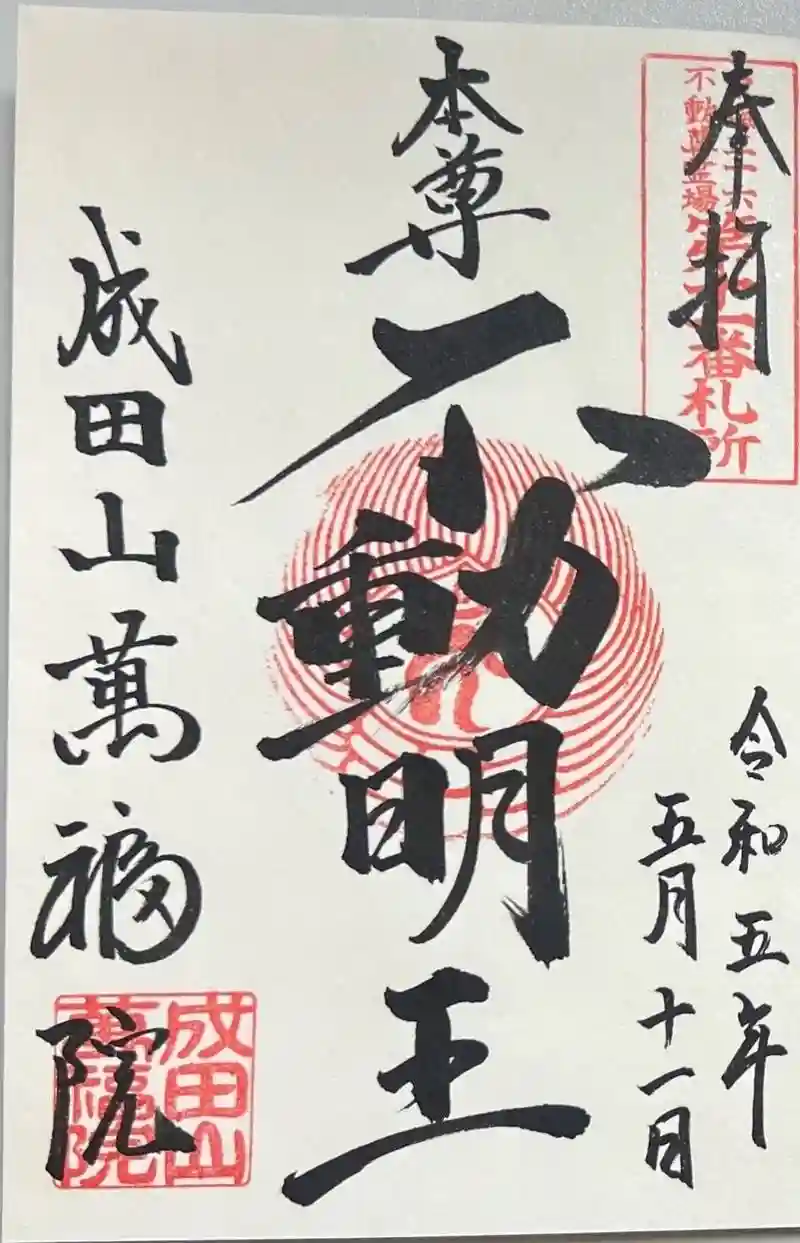 奉拝
三十六
不動尊霊場
第十一番札所
令和五年
五月十一日
本尊
不動明王
成田山萬福院
成田山
萬福院